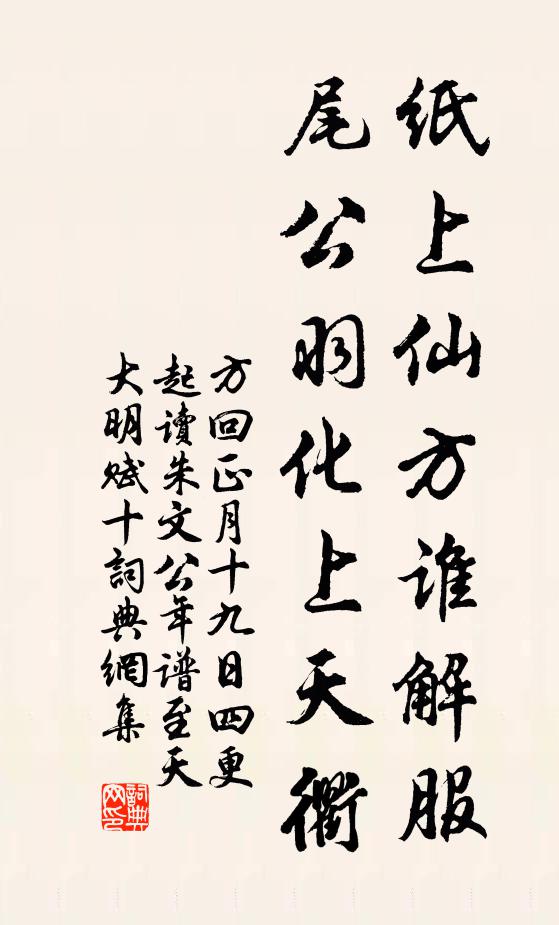 纸上仙方谁解服
尾公羽化上天衢
方回正月十九日四更
起讀朱文公年谱至天
大明赋十詞典網集
詞典網印